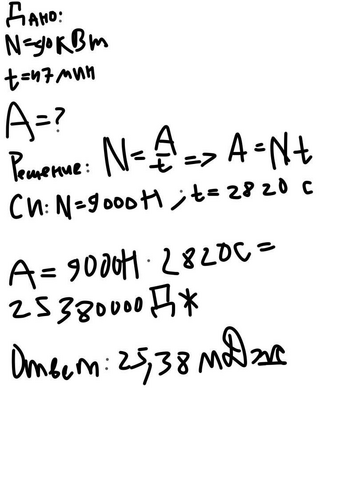 Дано:
N=90кВт
t=47мин
A=?
Решение: N=A/t => A=Nt
Си: N=9000Н ; t=2820 с
A= 9000Н · 2820С =
25380000 Дж
Ответ: 25,38 мДж